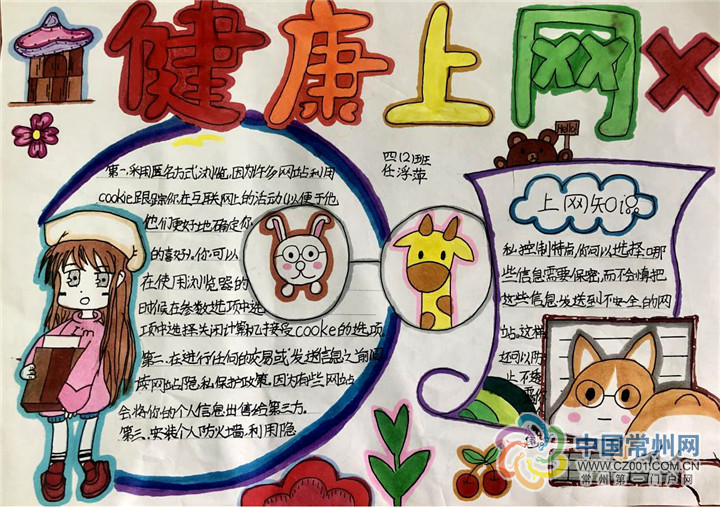 健康上网
四(2)班
任浮萍
Hello!
第一、采用匿名方式浏览,因为许多网站利用
cookie跟踪你在互联网上的活动,以便于他
他们更好地确定你
的喜好。你可以
在使用浏览器的
时候在参数选项中选
项中选择关闭计算机接受cookie的选项
第二、在进行任何的交易或发送信息之前阅
读网站隐私保护政策,因为有些网站
会将你的个人信息出售给第三方。
第三、安装个人防火墙,利用隐
I'm
上网知识
私控制特点,你可以选择哪
些信息需要保密,而不会慎把
这些信息发送到不安全的网
站,这样
还可以防
止不
中国常州网
WWW.CZ001.COM.CN
常州第一门户网